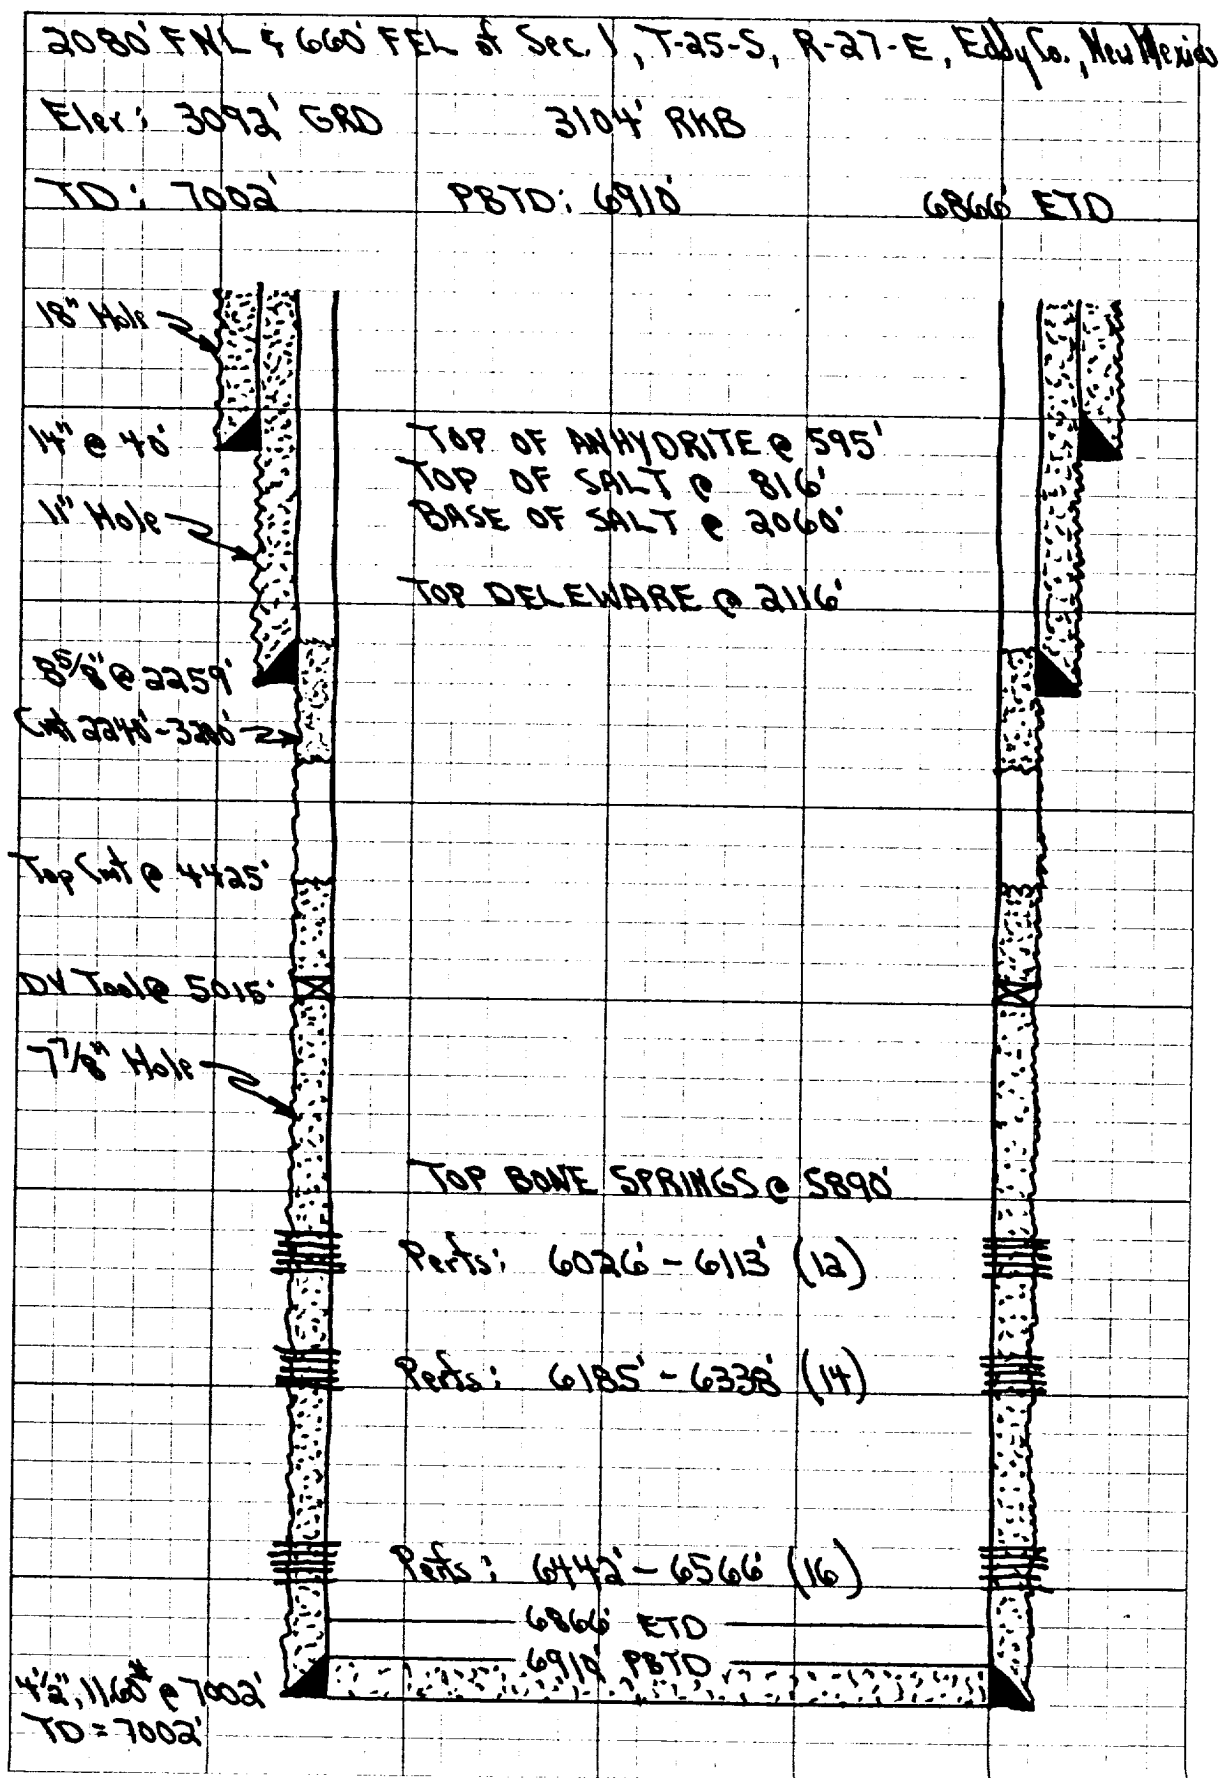 2080' FNL & 660' FEL of Sec. 1, T-25-S, R-27-E, Eddy Co., New Mexico
Elev: 3092' GRD 3104' RKB
TD: 7002' PBTD: 6910' 6866' ETD
18" Hole
14" @ 40'
TOP OF ANHYDRITE @ 595'
TOP OF SALT @ 816'
11" Hole
BASE OF SALT @ 2060'
TOP DELEWARE @ 2116'
8 5/8" @ 2259'
Cmt 2240'-3280'
Top Cmt @ 4425'
DV Tool @ 5015'
7 7/8" Hole
TOP BONE SPRINGS @ 5890'
Perfs: 6026' - 6113' (12)
Perfs: 6185' - 6338' (14)
Perfs: 6442' - 6566' (16)
6866' ETD
6910' PBTD
4 1/2", 11.60# @ 7002'
TD = 7002'